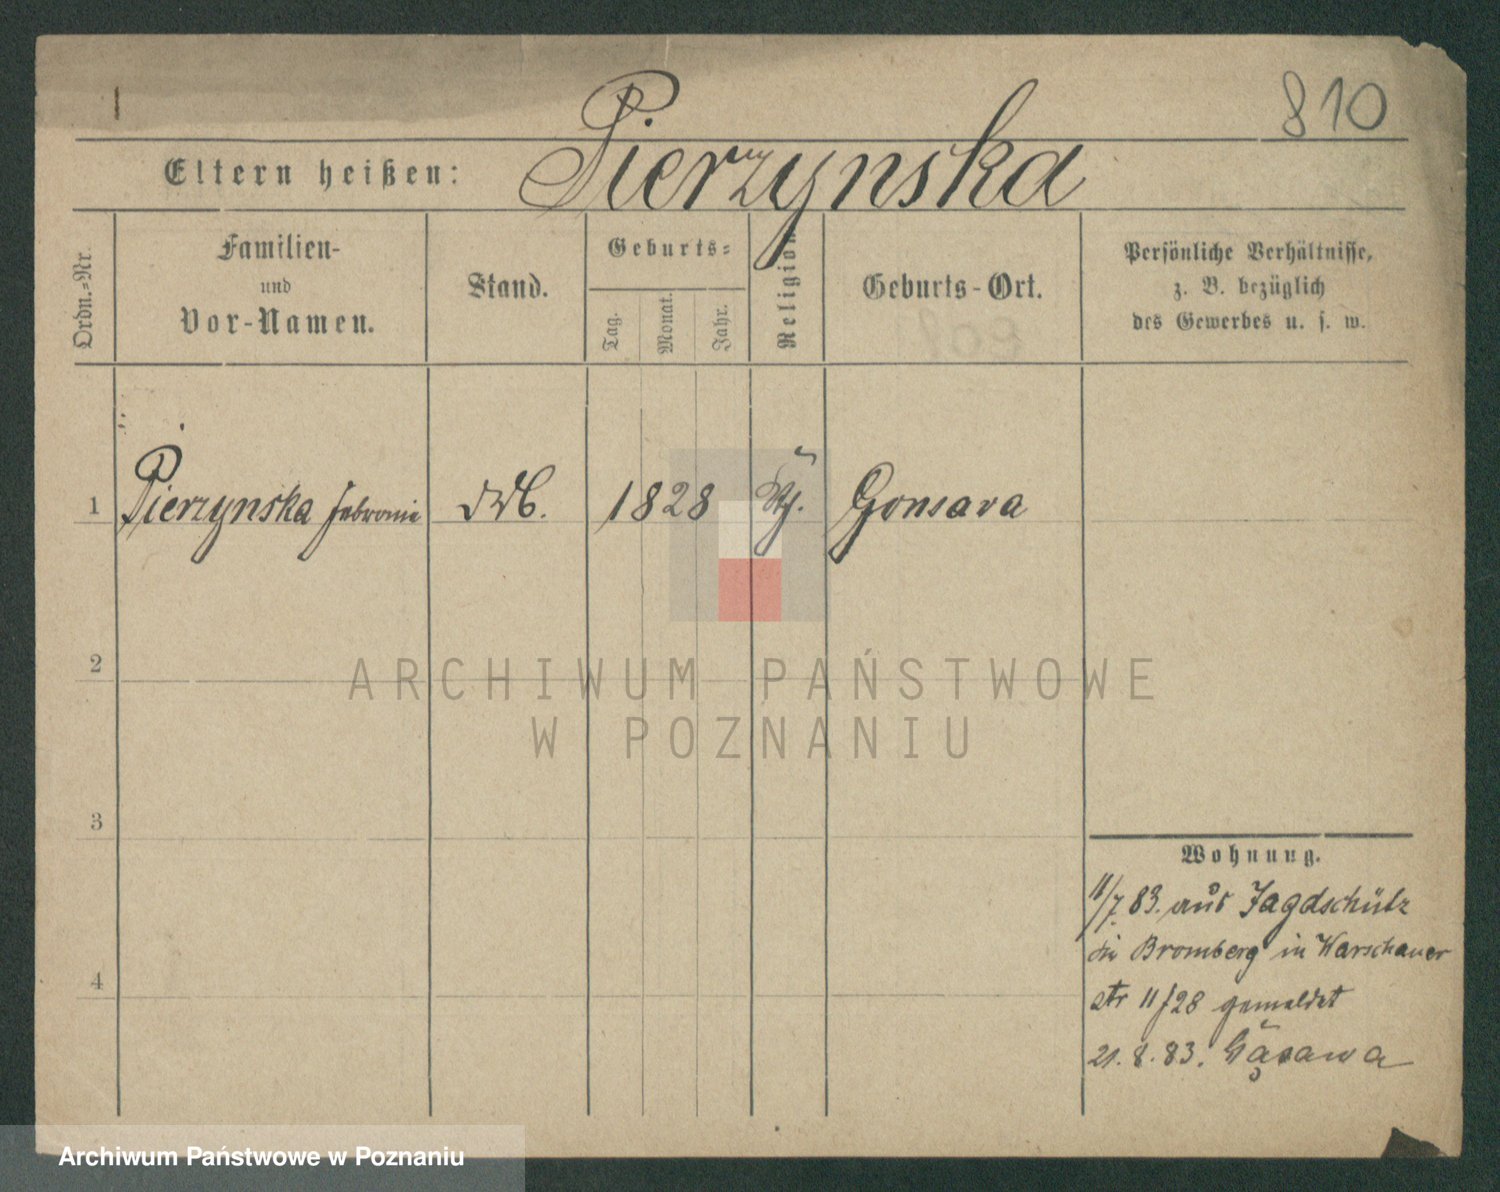 810
Pierzynska
Eltern heißen:
Ordn.-Nr.
Familien-
und
Vor-Namen.
Stand.
Geburts-
Tag.
Monat.
Jahr.
Religion
Geburts-Ort.
Persönliche Verhältnisse,
z. B. bezüglich
des Gewerbes u. s. w.
1 Pierzynska 1828 Gonsava
2
3
4
ARCHIWUM PAŃSTWOWE
W POZNANIU
Wohnung.
11/7. 83. aus Jagdschütz
Bromberg in Warschauer
str 11/28 gemeldet
21. 8. 83. Gąsawa
Archiwum Państwowe w Poznaniu